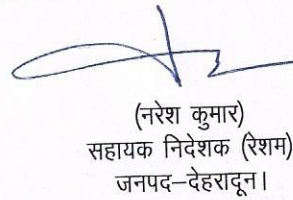 (नरेश कुमार)
सहायक निदेशक (रेशम)
जनपद–देहरादून।